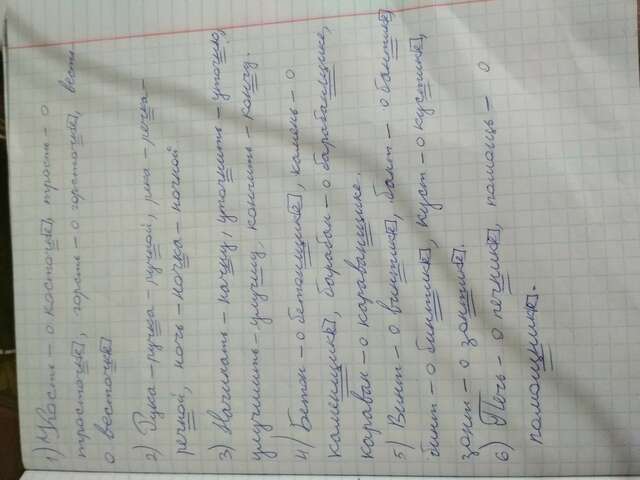 1) Кость – о косточке, трость – о
тросточке, горсть – о горсточке, весть
о весточке
2) Рука – ручка – ручной, река – речка –
речной, ночь – ночка – ночной
3) Начинать – начну, уточнить – уточню,
улучшить – улучшу, кончить – кончу.
4) Бетон – о бетонщике, камень – о
каменщике, барабан – о барабанщике,
караван – о караванщике.
5) Винт – о винтике, бант – о бантике,
бинт – о бинтике, куст – о кустике,
зонт – о зонтике.
6) Печь – о печнике, помощь – о
помощнике.